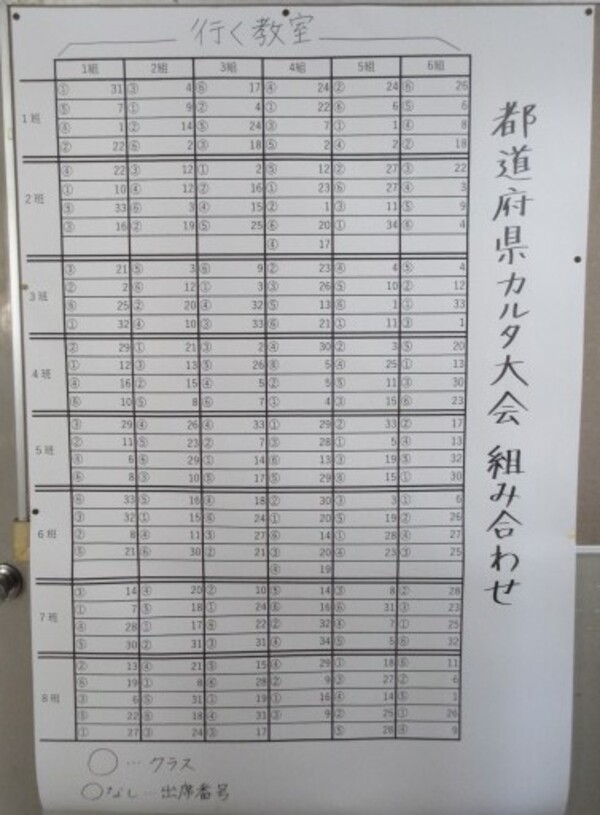 行く教室
1組 2組 3組 4組 5組 6組
1班
① 31 ③ 4 ⑥ 17 ④ 24 ② 24 ⑥ 25
⑤ 7 ① 9 ② 4 ① 22 ⑥ 6 ⑤ 6
④ 1 ② 14 ⑤ 24 ③ 7 ① 1 ④ 8
② 22 ⑥ 2 ③ 18 ⑤ 2 ④ 2 ② 18
2班
④ 22 ③ 12 ① 2 ⑤ 12 ② 27 ③ 22
① 10 ④ 12 ② 16 ① 23 ⑥ 27 ④ 3
⑤ 33 ⑥ 3 ④ 15 ② 1 ③ 11 ⑤ 9
③ 16 ② 19 ⑤ 25 ⑥ 20 ① 34 ⑥ 4
④ 17
3班
③ 21 ⑤ 3 ⑥ 9 ② 23 ④ 4 ⑤ 4
② 2 ⑥ 12 ① 3 ③ 26 ⑤ 10 ② 12
⑥ 25 ② 20 ④ 32 ⑤ 13 ⑥ 1 ① 33
① 32 ④ 10 ③ 33 ⑥ 21 ① 11 ③ 1
4班
② 29 ① 21 ③ 2 ④ 30 ② 3 ⑤ 20
① 12 ③ 13 ⑤ 26 5 ④ 25 ① 13
④ 16 ② 15 ④ 5 ② 5 ⑤ 11 ③ 30
⑥ 10 ⑤ 8 ⑥ 7 ① 4 ③ 15 ⑥ 23
5班
③ 29 ④ 26 ④ 33 ① 29 ② 33 ② 17
② 11 ⑤ 23 ② 7 ③ 28 ① 5 ④ 13
④ 6 ⑥ 29 ① 14 ⑥ 13 ③ 19 ⑤ 32
⑥ 8 ③ 10 ⑤ 17 ⑤ 29 ④ 15 ① 30
6班
⑥ 33 ⑤ 16 ④ 18 ② 30 ③ 3 ① 6
③ 32 ① 15 ⑥ 24 ① 20 ⑤ 19 ② 26
② 8 ④ 11 ③ 27 ⑥ 14 ① 28 ④ 27
⑤ 21 ⑥ 30 ② 21 ③ 20 ④ 23 ③ 25
④ 19
7班
③ 14 ④ 20 ② 10 ⑤ 14 ③ 8 ② 28
① 7 ⑤ 18 ① 24 ⑥ 16 ⑥ 31 ③ 23
④ 28 ① 17 ⑥ 22 ② 32 ④ 7 ① 25
⑤ 30 ② 31 ③ 31 ④ 34 ⑤ 5 ⑥ 32
8班
② 13 ④ 21 ⑤ 15 ④ 29 ① 18 ⑥ 11
⑥ 19 ① 8 ⑥ 28 ② 9 ③ 27 ② 6
③ 6 ⑤ 31 ① 19 ① 16 ④ 14 ⑤ 1
⑤ 22 ⑥ 18 ④ 31 ③ 9 ② 25 ① 26
① 27 ③ 24 ③ 17 ⑤ 28 ④ 9
○…クラス
○なし…出席番号
都道府県カルタ大会 組み合わせ